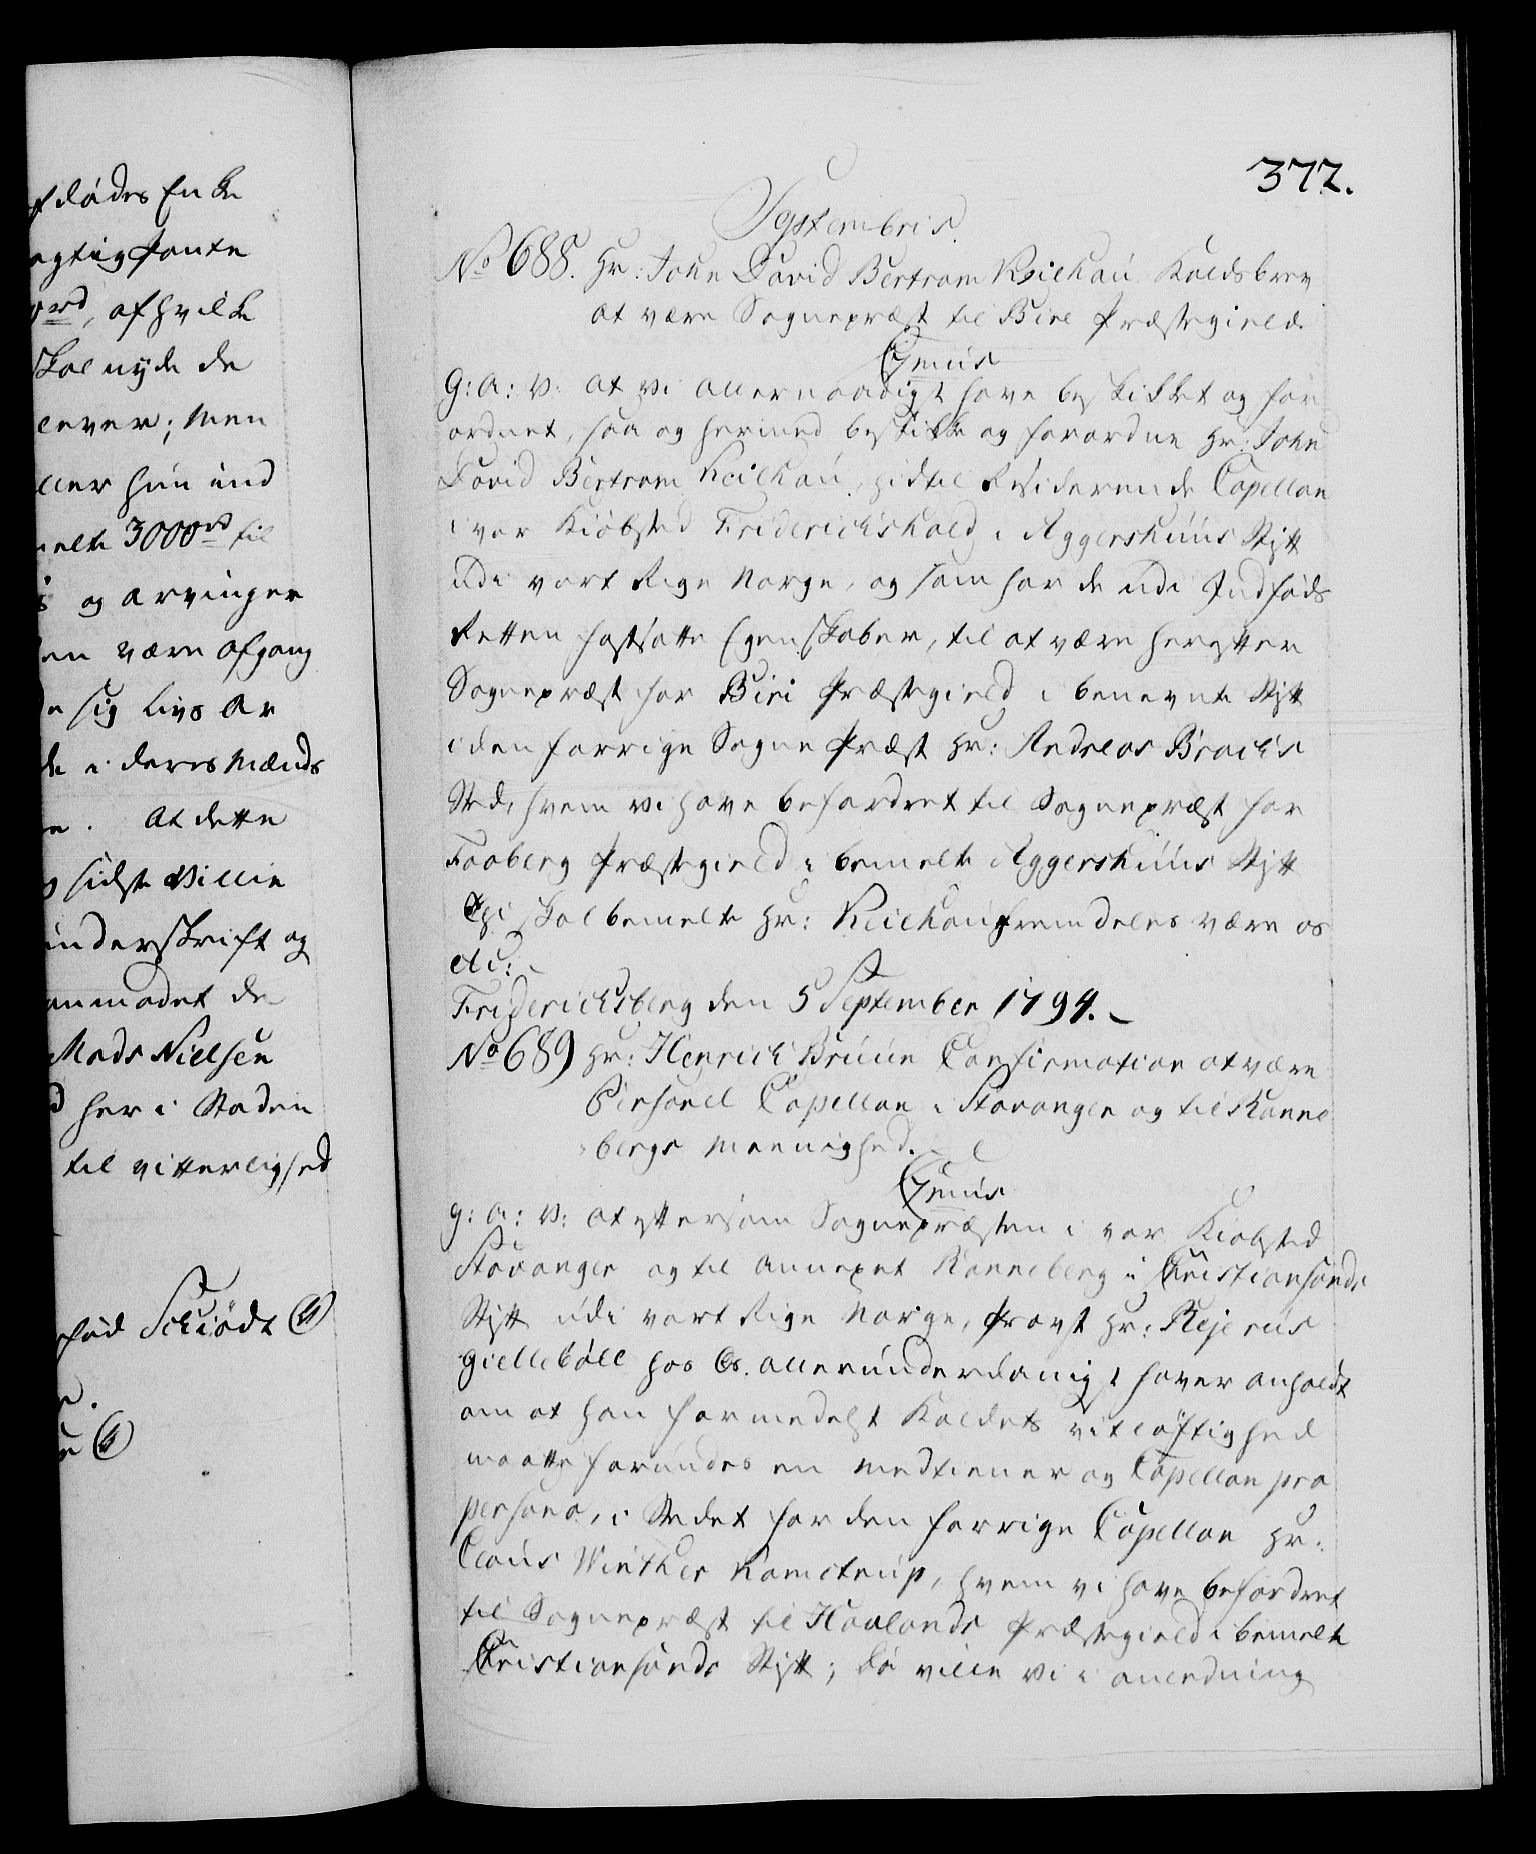 f dødes Enke
agtig fante
ord, af hvilke
skal nyde de
lever; men
eller hun ind
melte 3000 rd til
og arvinger
en være afgang
sig Livs Ar
de i deres Mænds
At dette
sidste Villie
underskrift og
anmodet de
Mads Nielsen
her i Staden
til vitterlighed
Schiødt
372.
Septembris.
No 688. Hr: John David Bertram Keilhau Kaldsbrev
at være Sognepræst til Bire Præstegield
Gratis
G: A: V: at vi allernaadigst have beskikket og for
ordnet, saa og hermed beskikke og forordne Hr: John
David Bertram Keilhau, hidtil Residerende Capellan
i vor Kiøbsted Friderichshald i Aggershuus Stift
udi vort Rige Norge, og som har de udi Indføds
Retten fastsatte Egenskaber, til at være herefter
Sognepræst for Biri Præstegield i benevnte Stift
i den forrige Sogne Præst Hr: Andreas Brochs
Sted, hvem vi have befordret til Sognepræst for
Faaberg Præstegield i bemelte Aggershuus Stift
Thi skal bemelte Hr: Keilhau fremdeles være os
etc:
Friderichsberg den 5 September 1794.
No 689 Hr: Henrich Bruun Confirmation at være
Personel Capellan i Stavanger og til Ranne
bergs Meenighed.
Gratis
G: A: V: at eftersom Sognepræsten i vor Kiøbsted
Stavanger og til Annexet Ranneberg i Christiansands
Stift udi vort Rige Norge, Provst Hr: Rejerus
Giellebøll hos Os allerunderdanigst haver anholdt
om at han formedelst Kaldets vitløftighed
maatte forundes en Medtiener og Capellan pro
persona, i Stedet for den forrige Capellan Hr:
Claus Winther Kamstrup, hvem vi have befordret
til Sognepræst til Houlands Præstegield i bemelte
Christiansands Stift; Da ville Vi i anledning